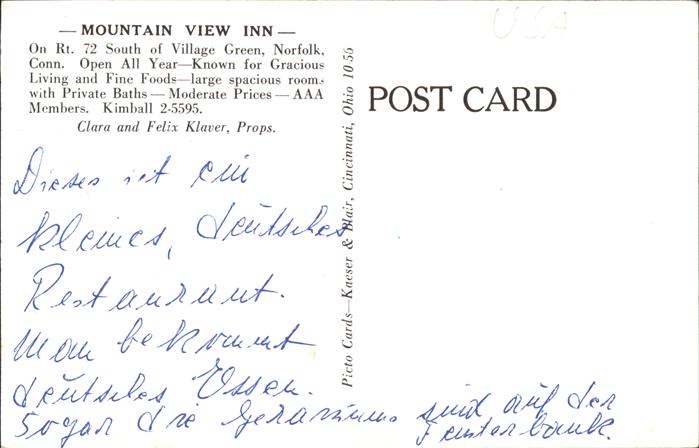 USA
— MOUNTAIN VIEW INN —
On Rt. 72 South of Village Green, Norfolk,
Conn. Open All Year—Known for Gracious
Living and Fine Foods—large spacious rooms
with Private Baths — Moderate Prices — AAA
Members. Kimball 2-5595.
Clara and Felix Klaver, Props.
Dieses ist ein
kleines, deutsches
Restaurant.
Man bekommt
deutsches Essen.
Sogar die Geraniums sind auf der
Fensterbank.
Picto Cards—Kaeser & Blair, Cincinnati, Ohio 10-56
POST CARD